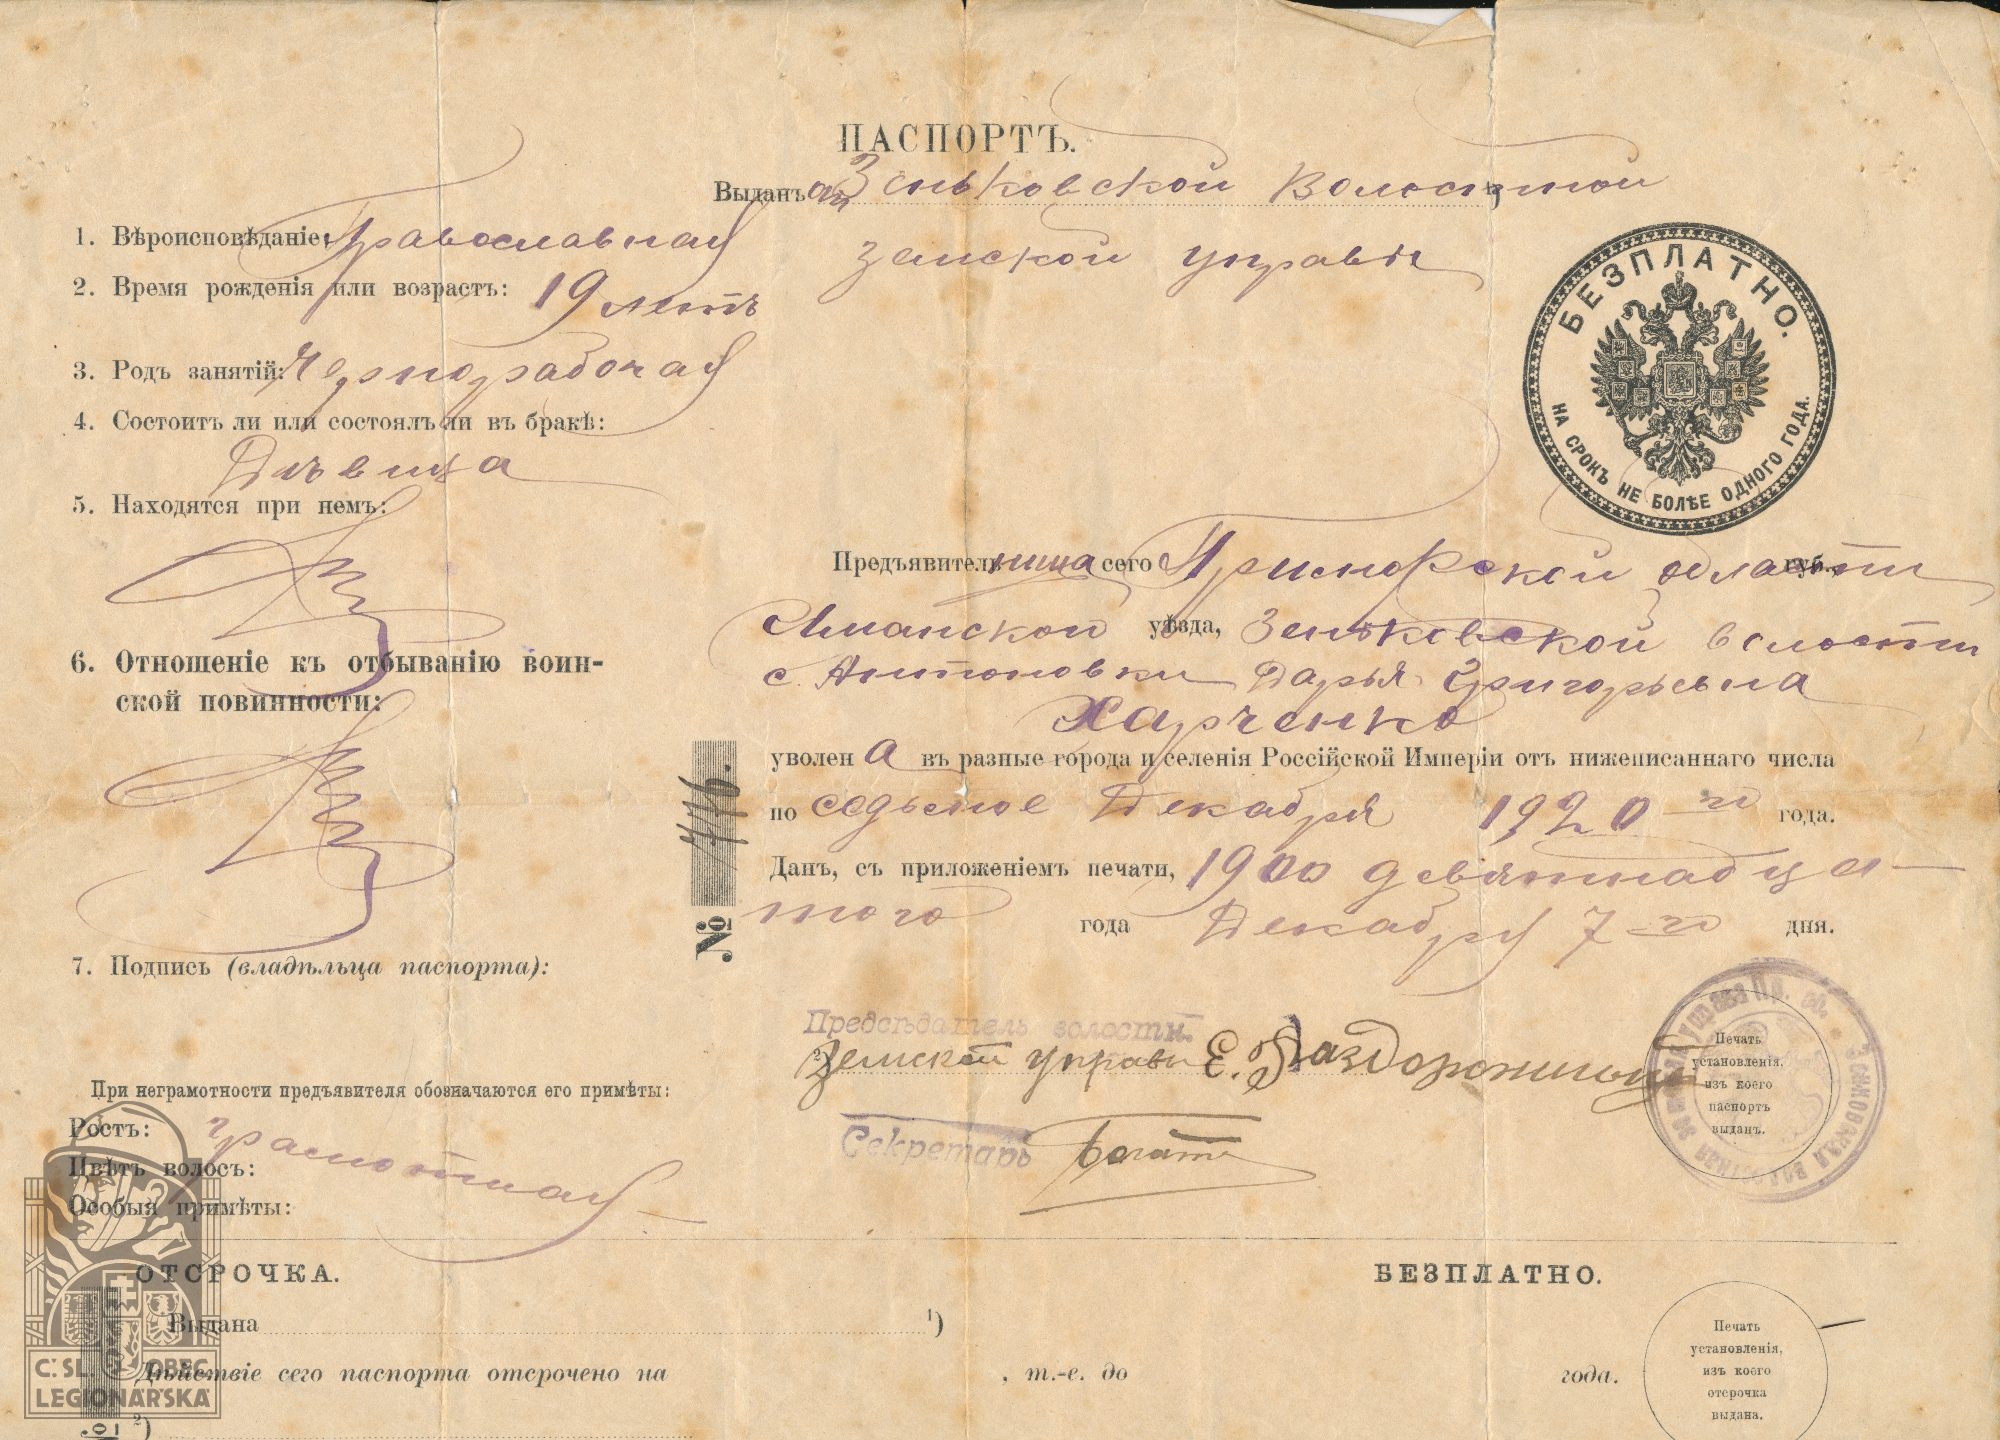 ПАСПОРТЪ.
Выданъ отъ Зеньковской Волостной
земской управы
БЕЗПЛАТНО.
НА СРОКЪ НЕ БОЛѢЕ ОДНОГО ГОДА.
1. Вѣроисповѣданіе: Православная
2. Время рожденія или возрастъ: 19 летъ
3. Родъ занятій: Чернорабочая
4. Состоитъ ли или состоялъ ли въ бракѣ:
Дѣвица
5. Находятся при немъ:
6. Отношеніе къ отбыванію воин-
ской повинности:
7. Подпись (владѣльца паспорта):
При неграмотности предъявителя обозначаются его примѣты:
Ростъ: грамотная
Цвѣтъ волосъ:
Особыя примѣты:
Предъявительница сего Приморской области губ.,
Иманскои уѣзда, Зеньковской волости
с. Антоновки Дарья Григорьевна
Харченко
уволена въ разные города и селенія Россійской Имперіи отъ нижеписаннаго числа
по седьмое Декабря 1920 го года.
Данъ, съ приложеніемъ печати, 1900 девятнадца-
того года Декабря 7-го дня.
№ 776.
Предсѣдатель волостн.
2) земской управы Е.
Секретарь
Печать
установленія,
изъ коего
паспортъ
выданъ.
ОТСРОЧКА.
БЕЗПЛАТНО.
Выдана 1)
Дѣйствіе сего паспорта отсрочено на , т.-е. до года.
2)
№
Печать
установленія,
изъ коего
отсрочка
выдана.
Č. SL. OBEC
LEGIONÁŘSKÁ